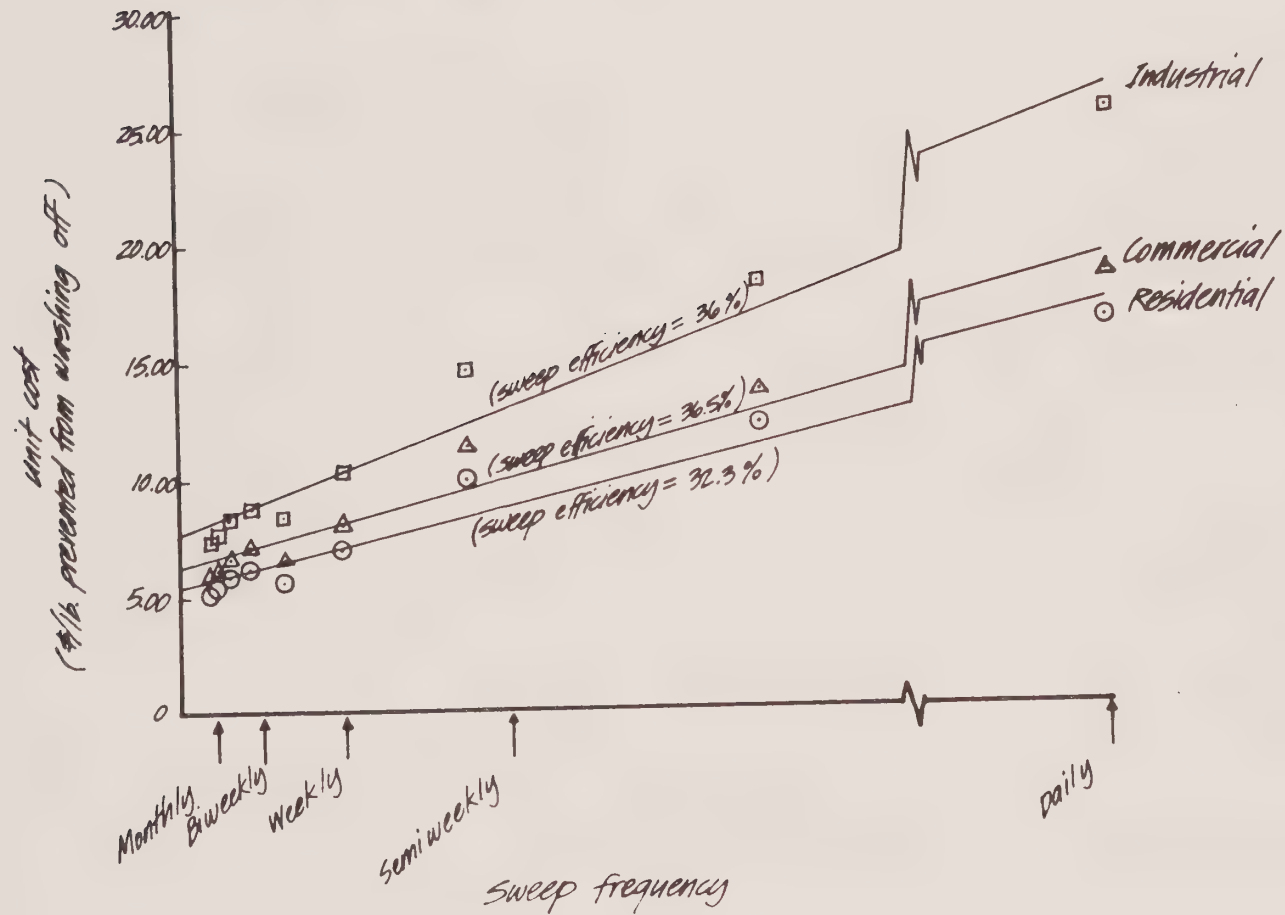 30.00
25.00
20.00
15.00
10.00
5.00
0
unit cost
($/lb. prevented from washing off)
Industrial
Commercial
Residential
(sweep efficiency = 36%)
(sweep efficiency = 36.5%)
(sweep efficiency = 32.3%)
Monthly
Biweekly
Weekly
Semiweekly
Daily
Sweep frequency